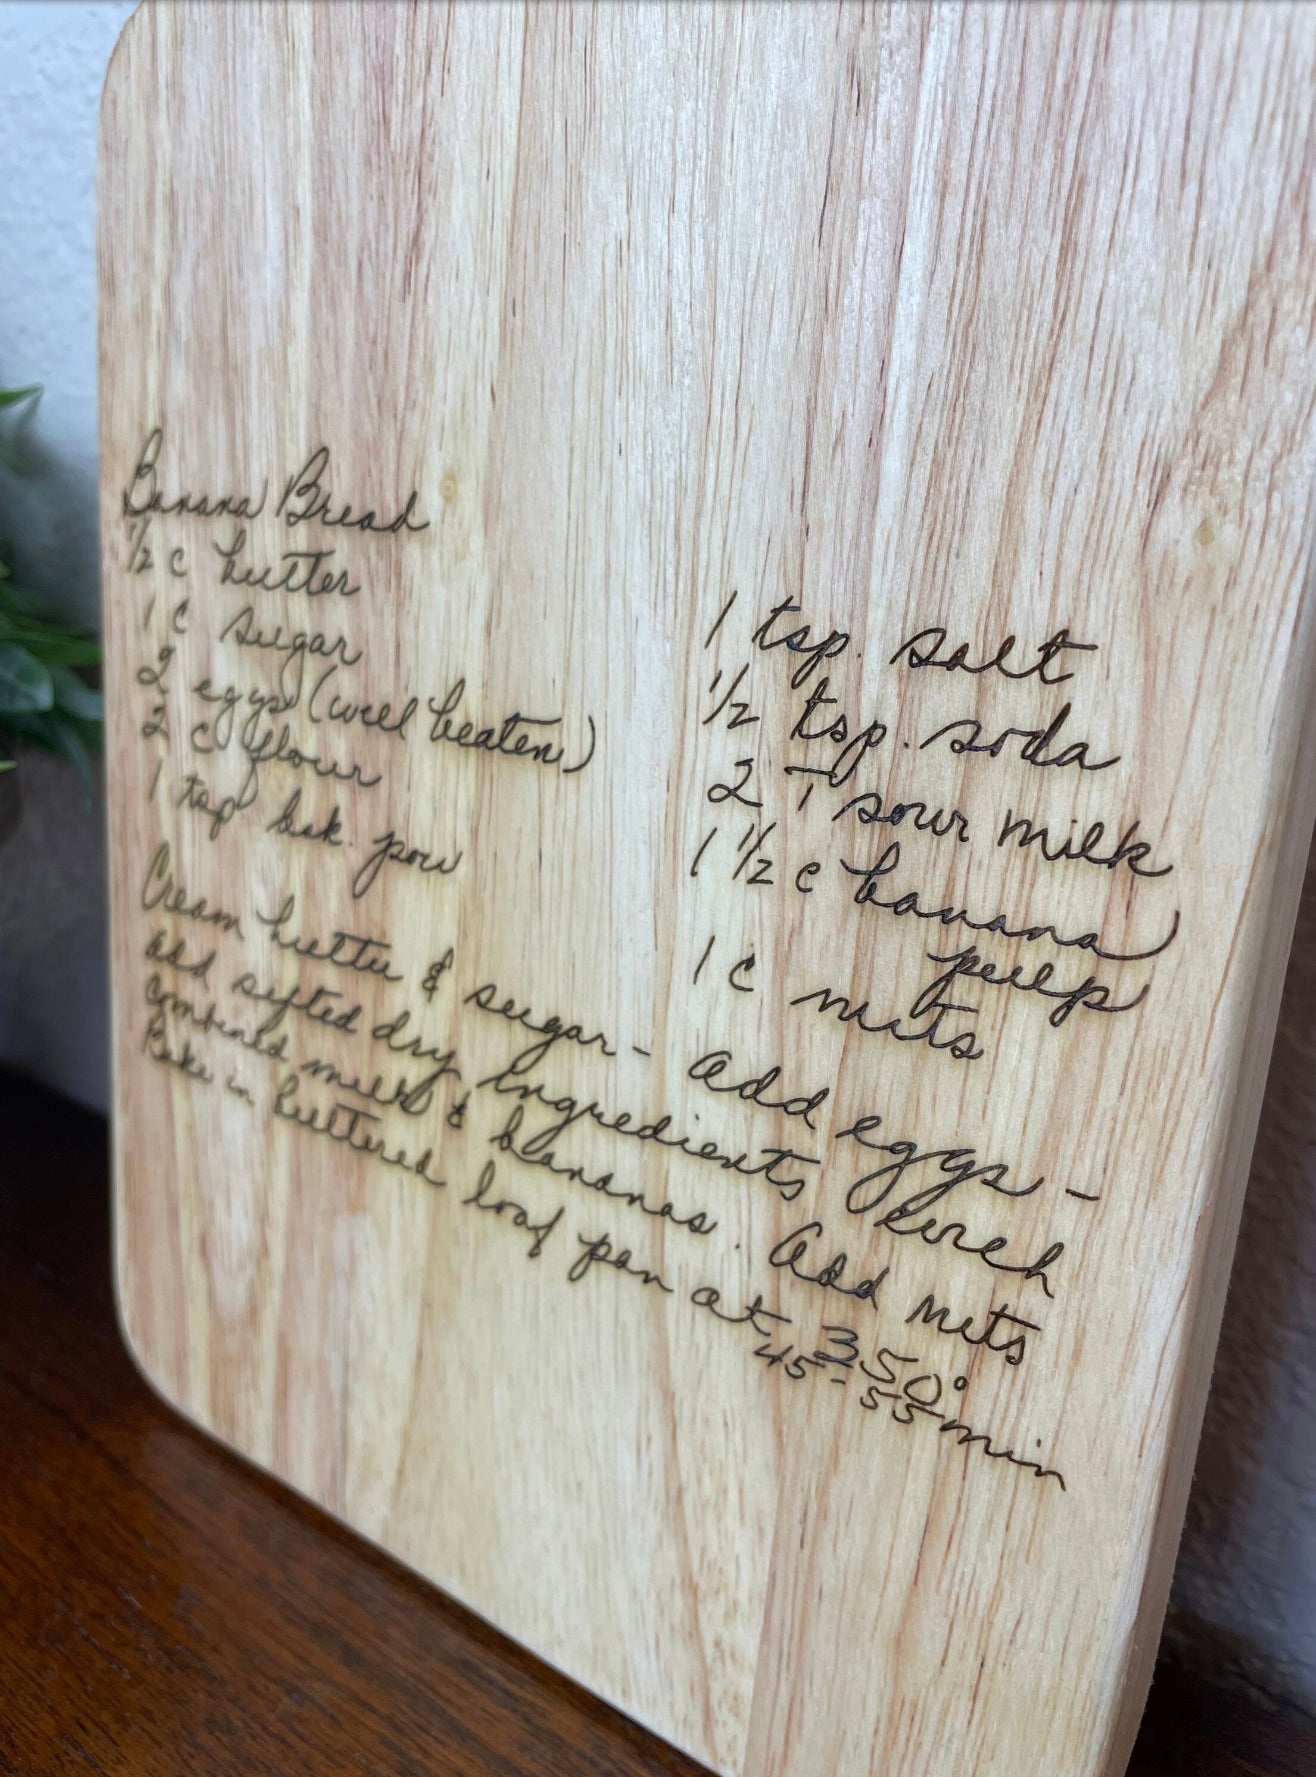 Banana Bread
1/2 c butter
1 c sugar
2 eggs (well beaten)
2 c flour
1 tsp bak. pow
1 tsp. salt
1/2 tsp. soda
2 T sour milk
1 1/2 c banana
pulp
1 c nuts
Cream butter & sugar - add eggs -
add sifted dry ingredients with
combined milk & bananas. Add nuts
Bake in buttered loaf pan at 350°
45 - 55 min